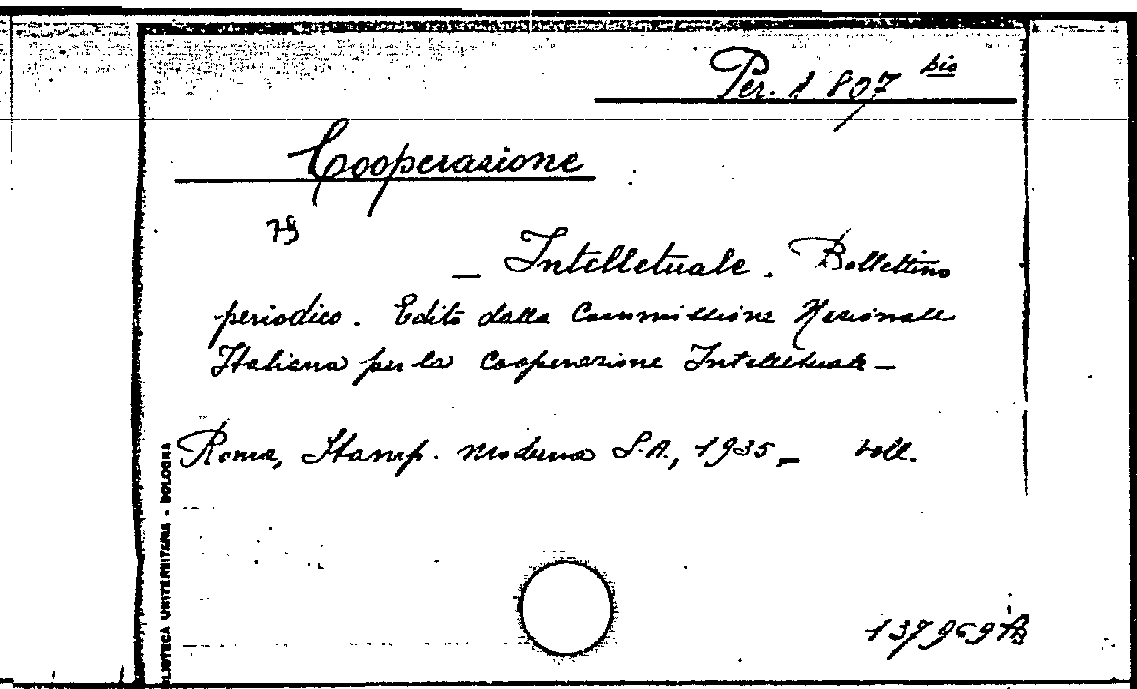 Per. 1807 bis
Cooperazione
75
— Intelletuale. Bollettino
periodico. Edito dalla Commissione Nazionale
Italiana per la Cooperazione Intelletuale —
Roma, Stamp. moderna S.A., 1935 — voll.
BIBLIOTECA UNIVERSITARIA - BOLOGNA
137969